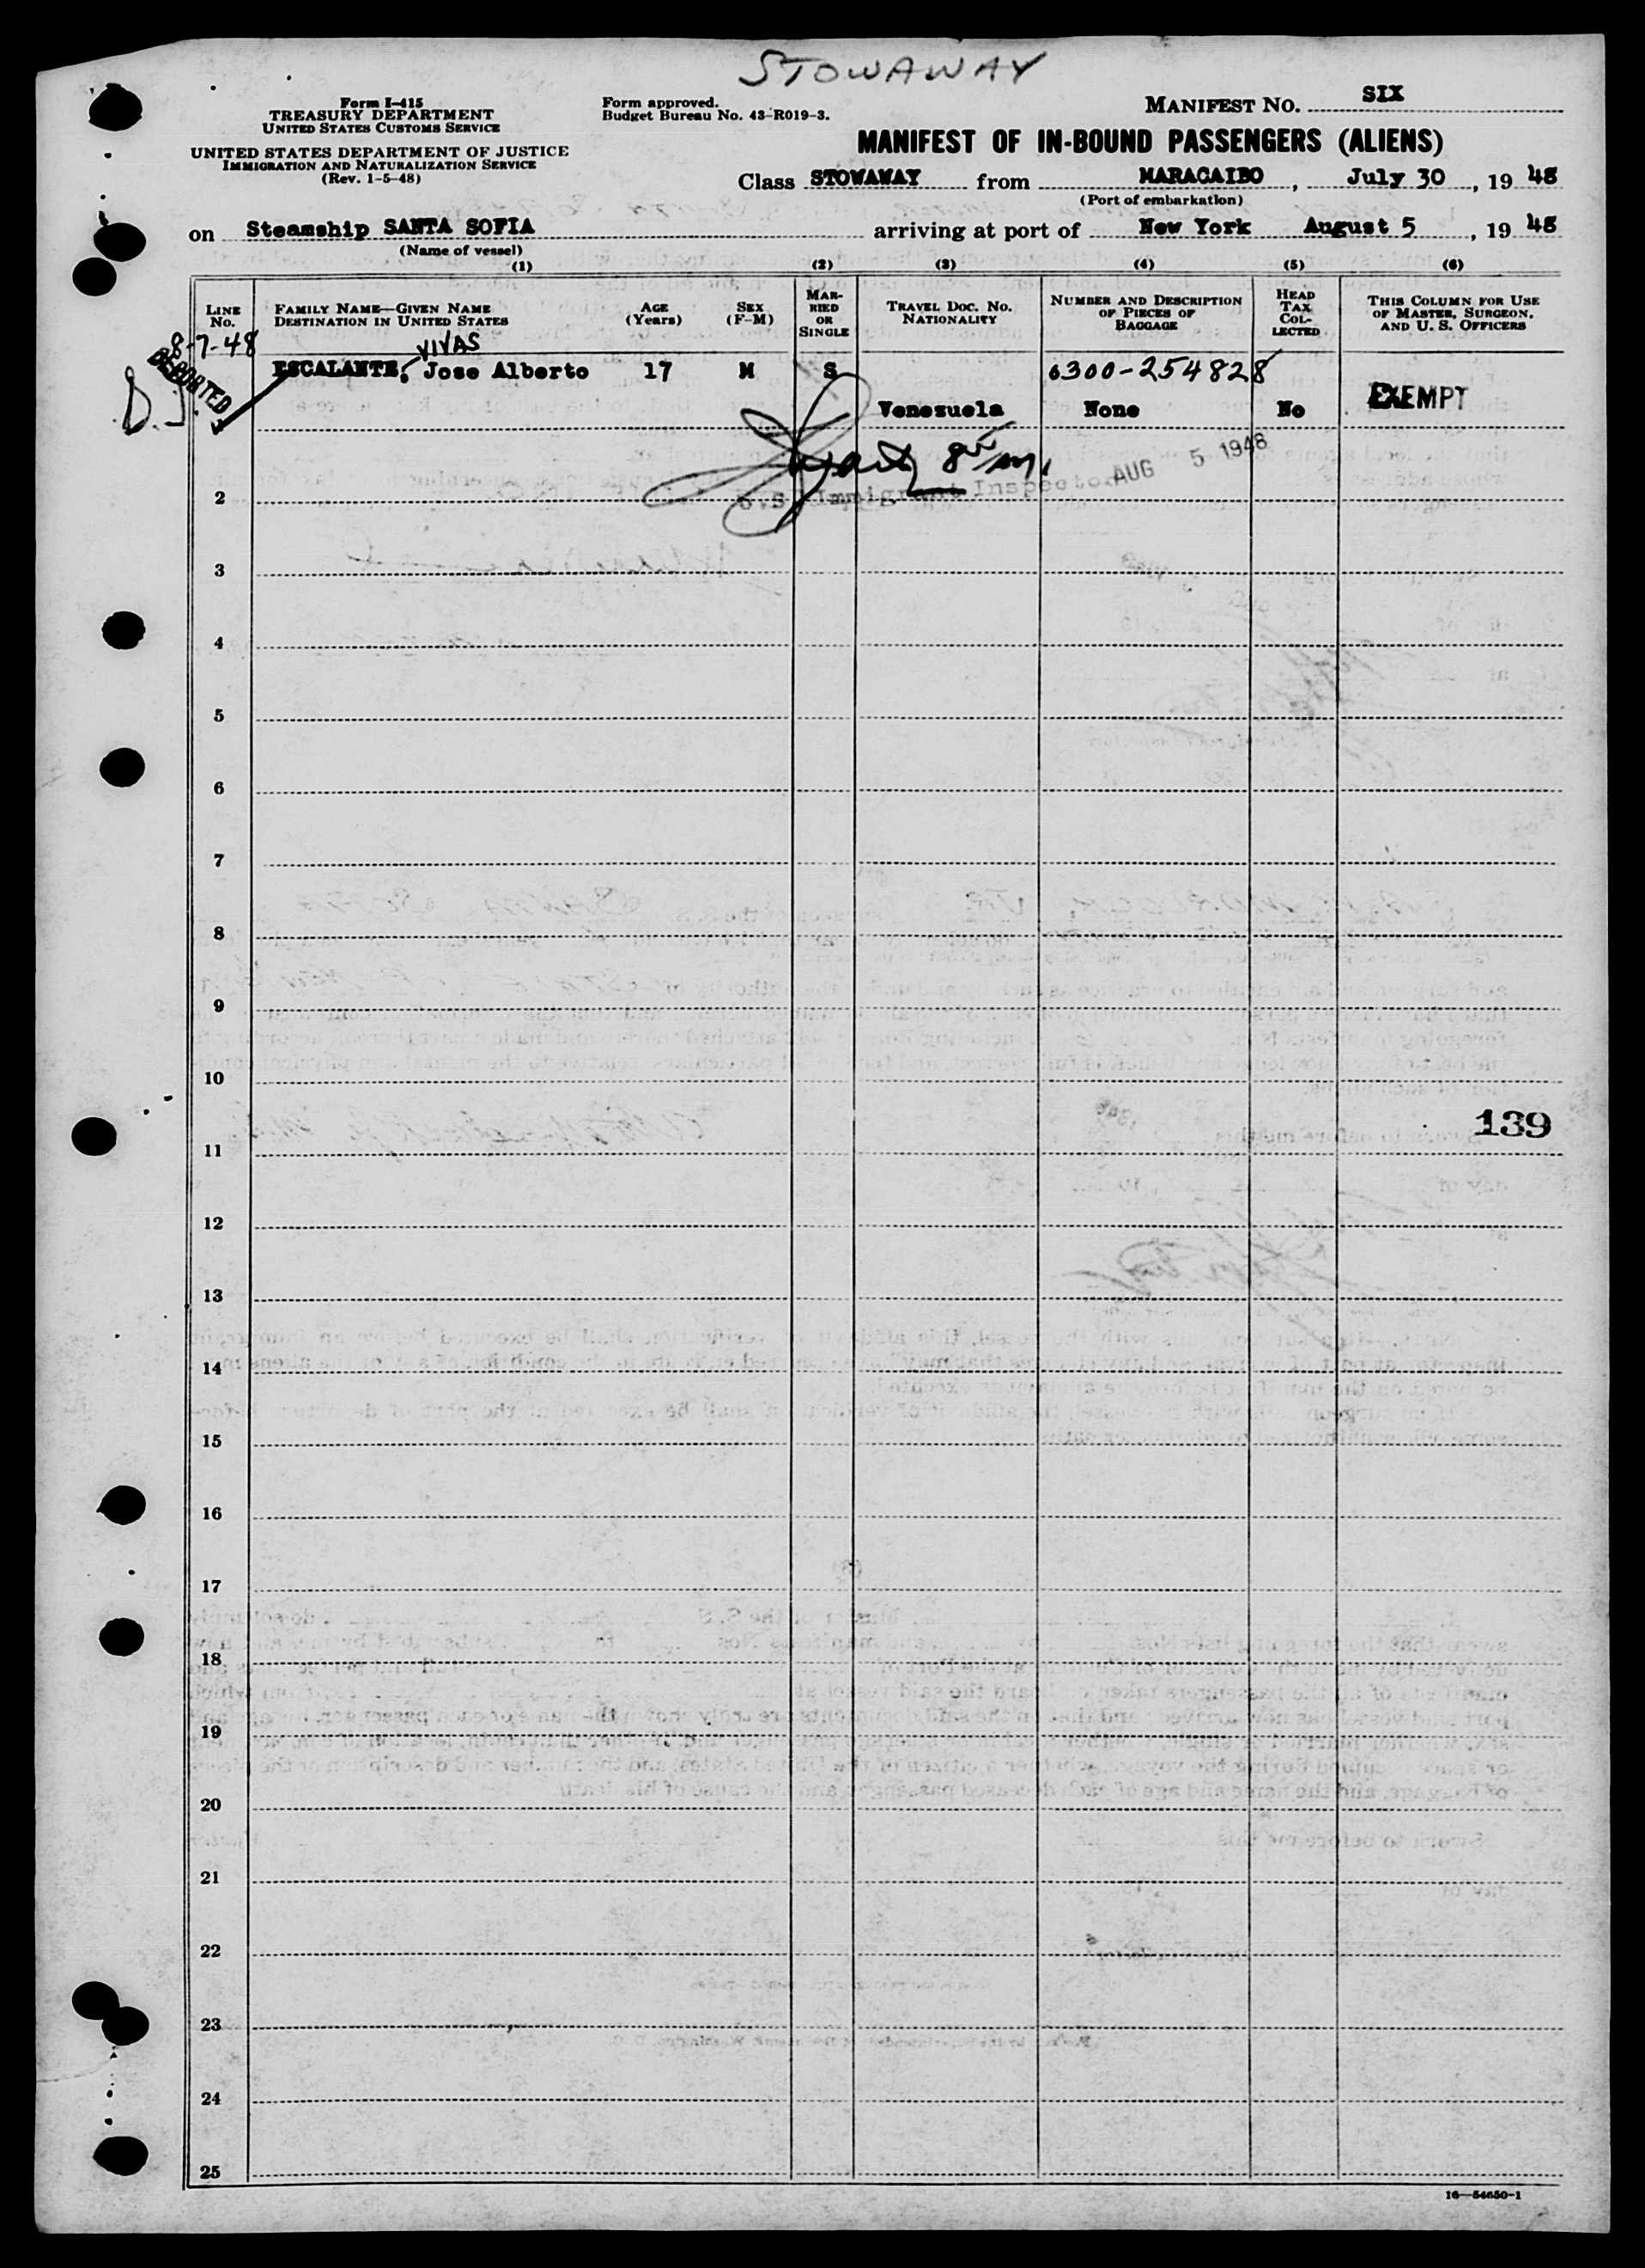 STOWAWAY
Form I-415
TREASURY DEPARTMENT
UNITED STATES CUSTOMS SERVICE
UNITED STATES DEPARTMENT OF JUSTICE
IMMIGRATION AND NATURALIZATION SERVICE
(Rev. 1-5-48)
Form approved.
Budget Bureau No. 43-R019-3.
MANIFEST NO. SIX
MANIFEST OF IN-BOUND PASSENGERS (ALIENS)
Class STOWAWAY from MARACAIBO, July 30, 19 48
(Port of embarkation)
on Steamship SANTA SOFIA arriving at port of New York August 5, 19 48
(Name of vessel)
(1) (2) (3) (4) (5) (6)
LINE NO.
FAMILY NAME—GIVEN NAME
DESTINATION IN UNITED STATES
AGE (Years)
SEX (F-M)
MARRIED OR SINGLE
TRAVEL DOC. NO.
NATIONALITY
NUMBER AND DESCRIPTION OF PIECES OF BAGGAGE
HEAD TAX COLLECTED
THIS COLUMN FOR USE OF MASTER, SURGEON, AND U. S. OFFICERS
8-7-48
DEPORTED
VIVAS
ESCALANTE, Jose Alberto 17 M S 0300-254828
Venezuela None No EXEMPT
U.S. Immigrant Inspector AUG 5 1948
2
3
4
5
6
7
8
9
10
139
11
12
13
14
15
16
17
18
19
20
21
22
23
24
25
16—54650-1